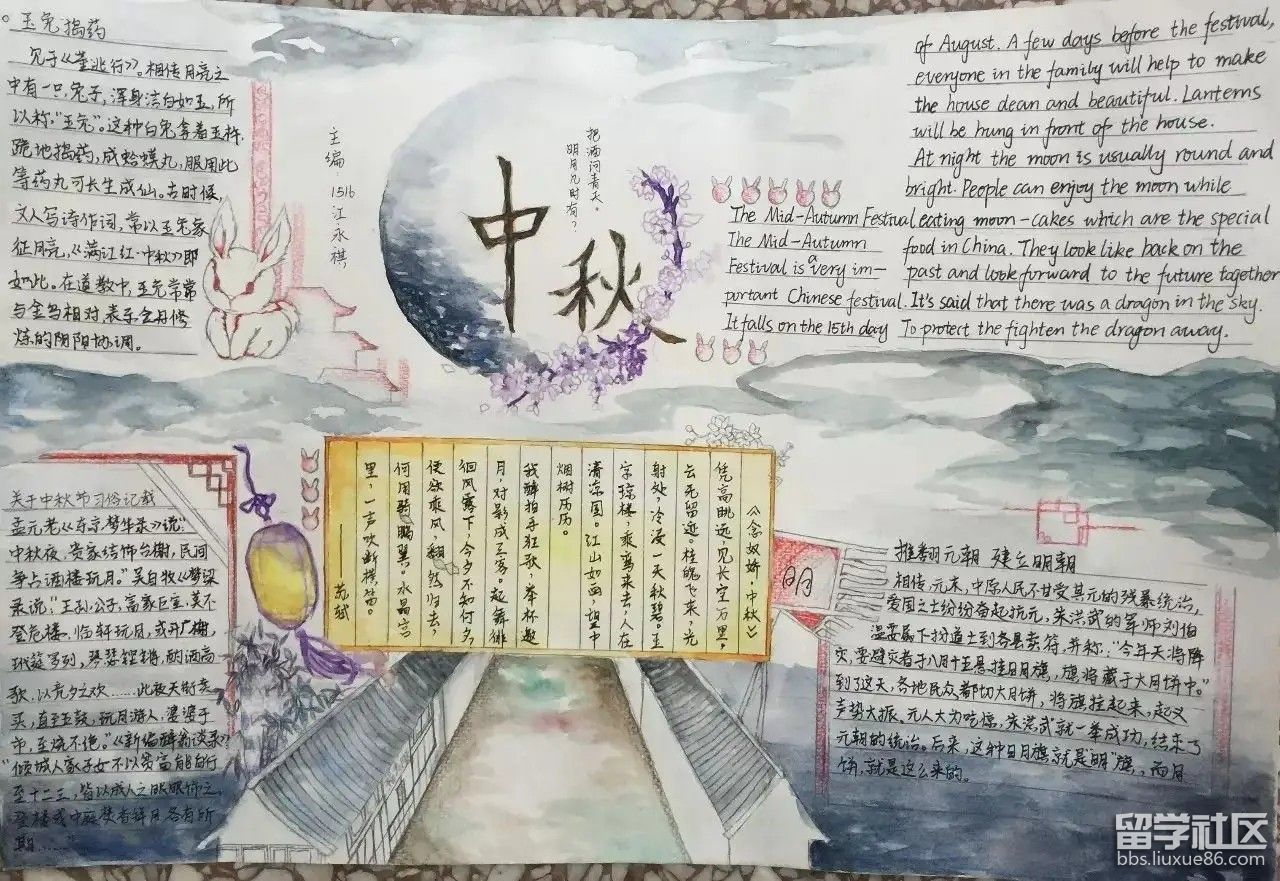 玉兔捣药
见于《董逃行》。相传月亮之
中有一只兔子，浑身洁白如玉，所
以称"玉兔"。这种白兔拿着玉杵，
跪地捣药，成蛤蟆丸，服用此
等药丸可长生成仙。古时候，
文人写诗作词，常以玉兔象
征月亮，《满江红·中秋》即
如此。在道教中，玉兔常常
与金乌相对，表示金丹修
炼的阴阳协调。
主编：1516江永棋
中秋
明月几时有？
把酒问青天。
The Mid-Autumn Festival
The Mid-Autumn
Festival is a very im-
portant Chinese festival.
It falls on the 15th day
of August. A few days before the festival,
everyone in the family will help to make
the house dean and beautiful. Lanterns
will be hung in front of the house.
At night the moon is usually round and
bright. People can enjoy the moon while
eating moon-cakes which are the special
food in China. They look like back on the
past and look forward to the future together
It's said that there was a dragon in the sky.
To protect the fighten the dragon away.
《念奴娇·中秋》
凭高眺远，见长空万里，
云无留迹。桂魄飞来，光
射处，冷浸一天秋碧。玉
宇琼楼，乘鸾来去，人在
清凉国。江山如画，望中
烟树历历。
我醉拍手狂歌，举杯邀
月，对影成三客。起舞徘
徊风露下，今夕不知何夕，
便欲乘风，翻然归去，
何用骑鹏翼。水晶宫
里，一声吹断横笛。
——苏轼
关于中秋节习俗记载
孟元老《东京梦华录》说："
中秋夜，贵家结饰台榭，民间
争占酒楼玩月。"吴自牧《梦梁
录说："王孙公子，富家巨室，莫不
登危楼，临轩玩月，或开广榭，
玳筵罗列，琴瑟铿锵，酌酒高
歌，以竟夕之欢……此夜天街卖
买，直至五鼓，玩月游人，婆娑于
市，至晓不绝。"《新编醉翁谈录》
"倾城人家子女不以贫富能自行
至十二三，皆以成人之服服饰之，
登楼或中庭焚香拜月，各有所
期……"
明
推翻元朝 建立明朝
相传，元末，中原人民不甘受其元的残暴统治，
爱国之士纷纷奋起抗元，朱洪武的军师刘伯
温要属下扮道士到各县卖符，并称："今年天将降
灾，要避灾者于八月十五悬挂日月旗，旗将藏于大月饼中。"
到了这天，各地民众都切大月饼，将旗挂起来，起义
声势大振，元人大为吃惊，朱洪武就一举成功，结束了
元朝的统治。后来，这种日月旗，就是"明"旗，而月
饼，就是这么来的。
留学社区
bbs.liuxue86.com